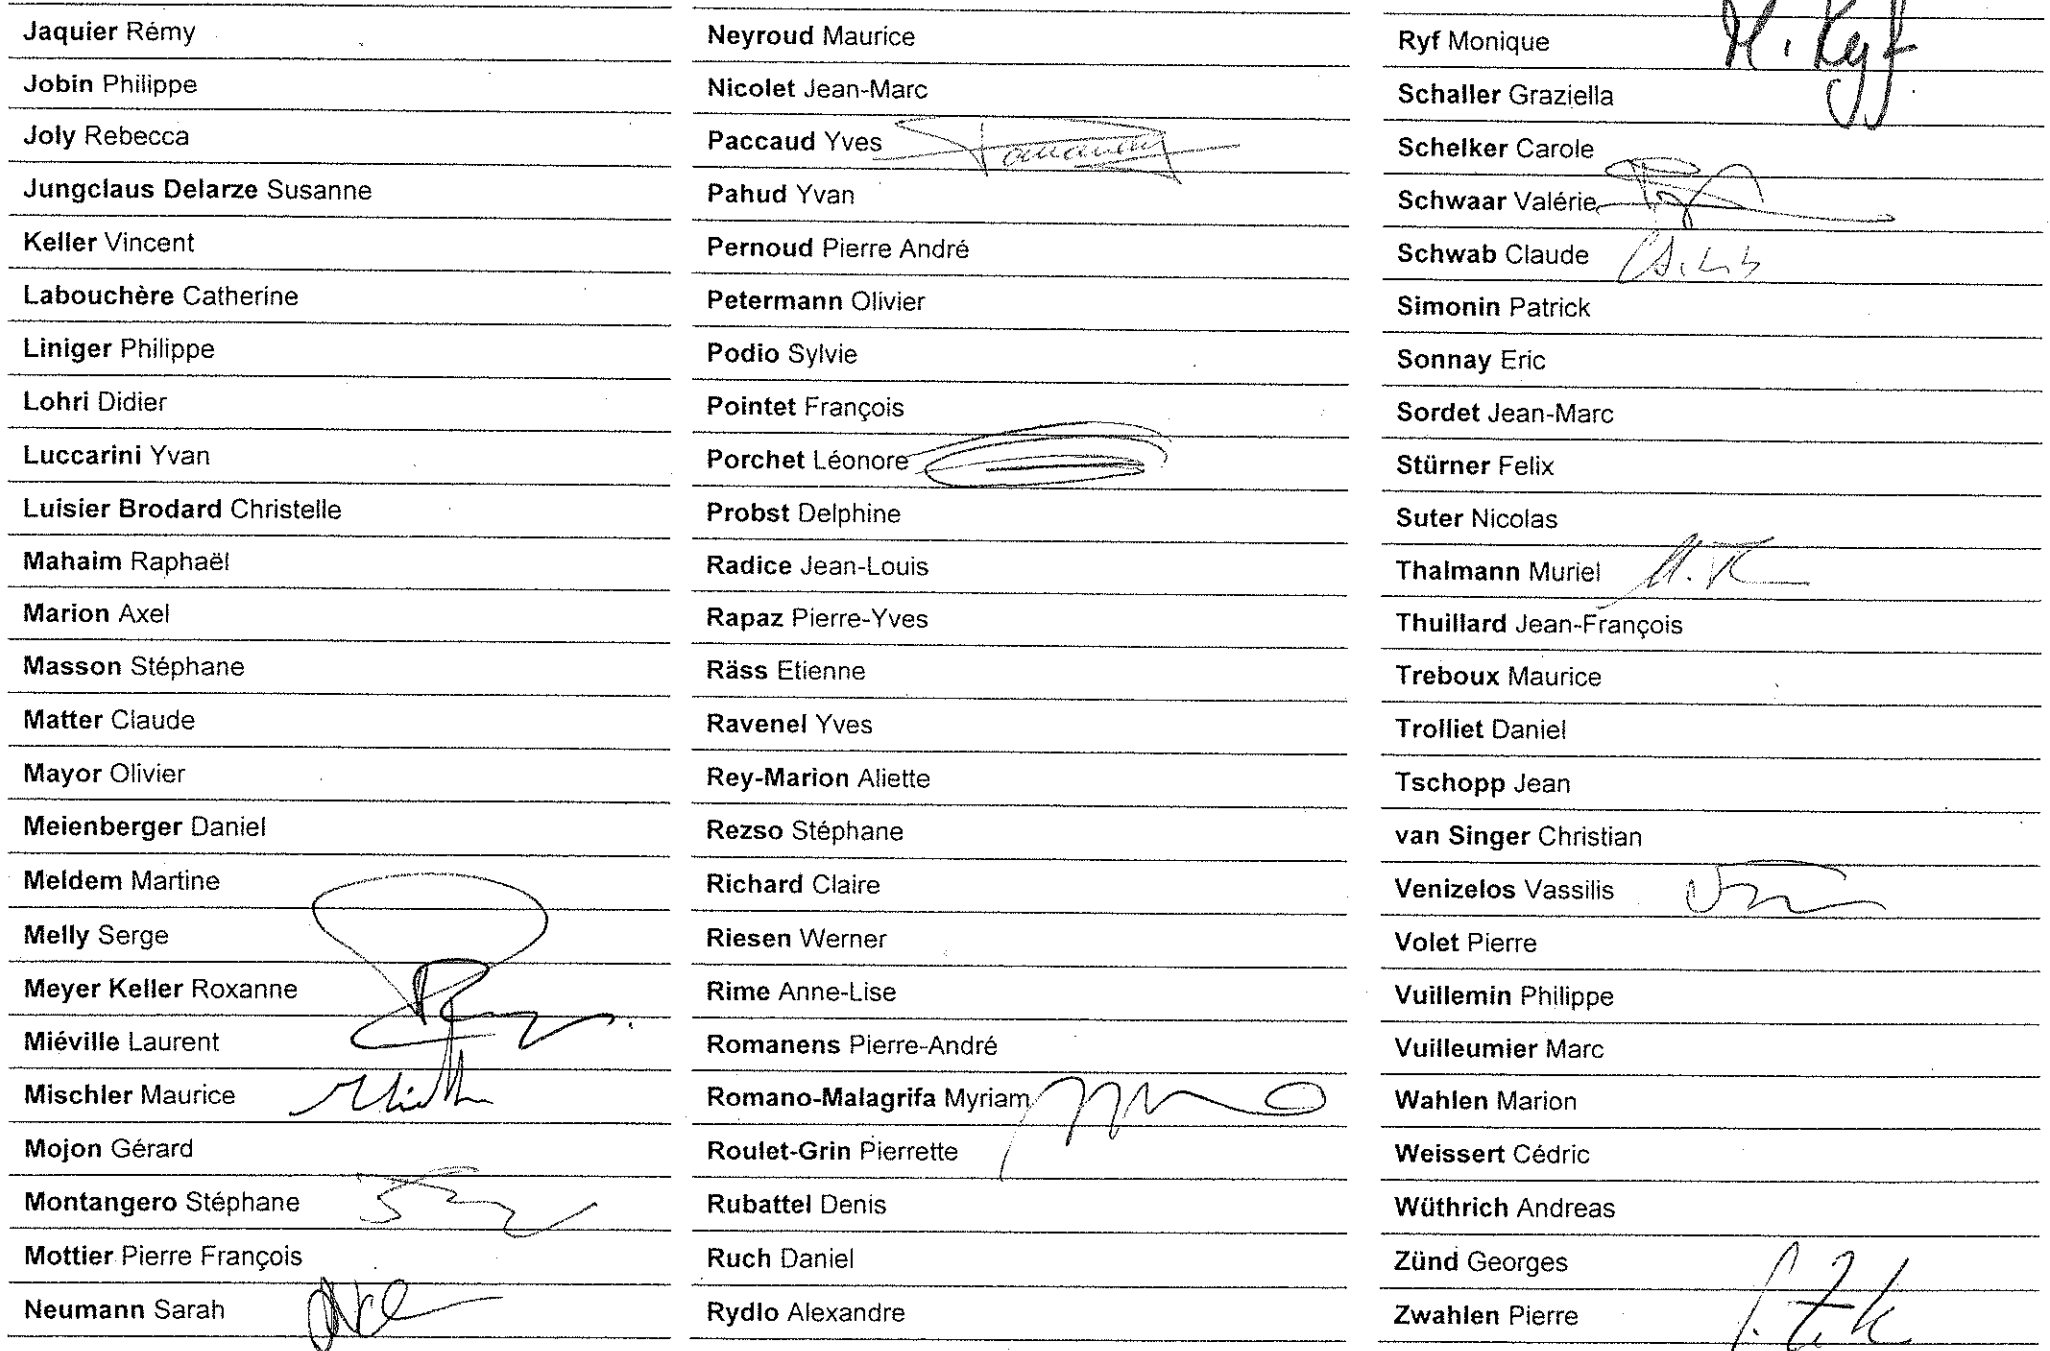 Jaquier Rémy
Jobin Philippe
Joly Rebecca
Jungclaus Delarze Susanne
Keller Vincent
Labouchère Catherine
Liniger Philippe
Lohri Didier
Luccarini Yvan
Luisier Brodard Christelle
Mahaim Raphaël
Marion Axel
Masson Stéphane
Matter Claude
Mayor Olivier
Meienberger Daniel
Meldem Martine
Melly Serge
Meyer Keller Roxanne
Miéville Laurent
Mischler Maurice
Mojon Gérard
Montangero Stéphane
Mottier Pierre François
Neumann Sarah
Neyroud Maurice
Nicolet Jean-Marc
Paccaud Yves
Pahud Yvan
Pernoud Pierre André
Petermann Olivier
Podio Sylvie
Pointet François
Porchet Léonore
Probst Delphine
Radice Jean-Louis
Rapaz Pierre-Yves
Räss Etienne
Ravenel Yves
Rey-Marion Aliette
Rezso Stéphane
Richard Claire
Riesen Werner
Rime Anne-Lise
Romanens Pierre-André
Romano-Malagrifa Myriam
Roulet-Grin Pierrette
Rubattel Denis
Ruch Daniel
Rydlo Alexandre
Ryf Monique M. Ryf
Schaller Graziella
Schelker Carole
Schwaar Valérie
Schwab Claude
Simonin Patrick
Sonnay Eric
Sordet Jean-Marc
Stürner Felix
Suter Nicolas
Thalmann Muriel
Thuillard Jean-François
Treboux Maurice
Trolliet Daniel
Tschopp Jean
van Singer Christian
Venizelos Vassilis
Volet Pierre
Vuillemin Philippe
Vuilleumier Marc
Wahlen Marion
Weissert Cédric
Wüthrich Andreas
Zünd Georges
Zwahlen Pierre